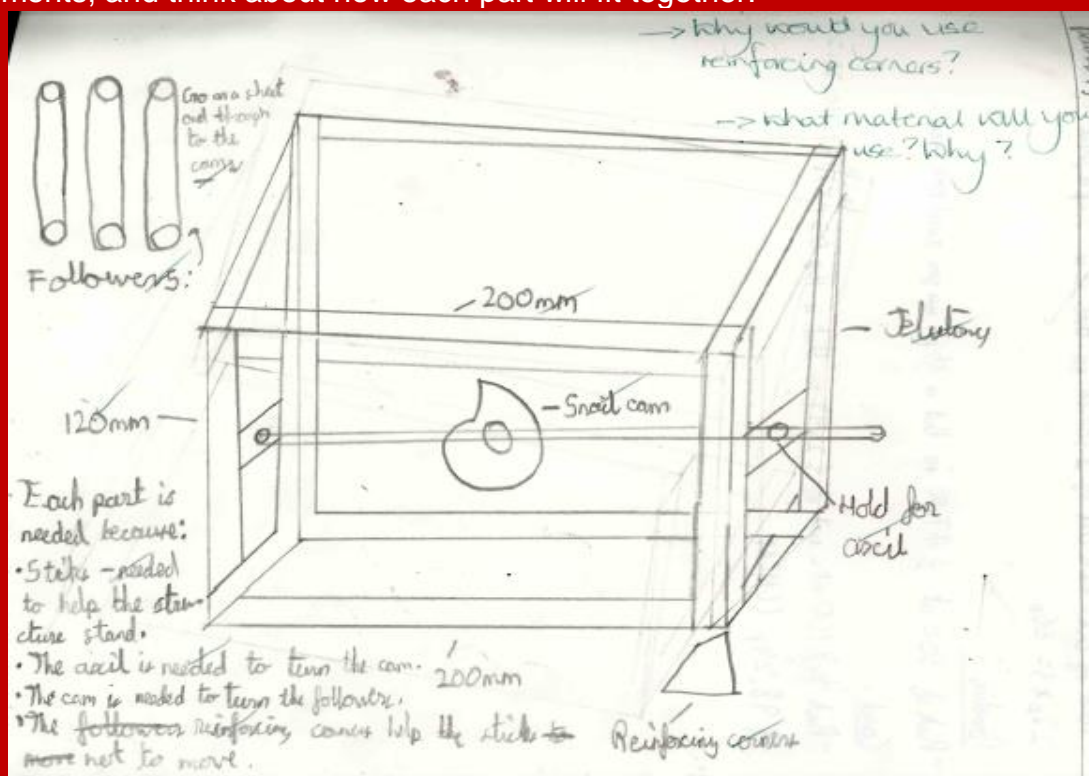 ments, and think about how each part will fit together.
→ Why would you use
reinforcing corners?
→ What material will you
use? Why?
Goes on a sheet
and through
to the
Followers:
200mm
Jelutony
120mm
Snail cam
Hold for
axcil
Each part is
needed because:
• Stiks - needed
to help the stru-
cture stand.
• The axcil is needed to turn the cam.
• The cam is needed to turn the followers.
• The followers reinforcing corners help the sticks to
move not to move.
200mm
Reinforcing corners